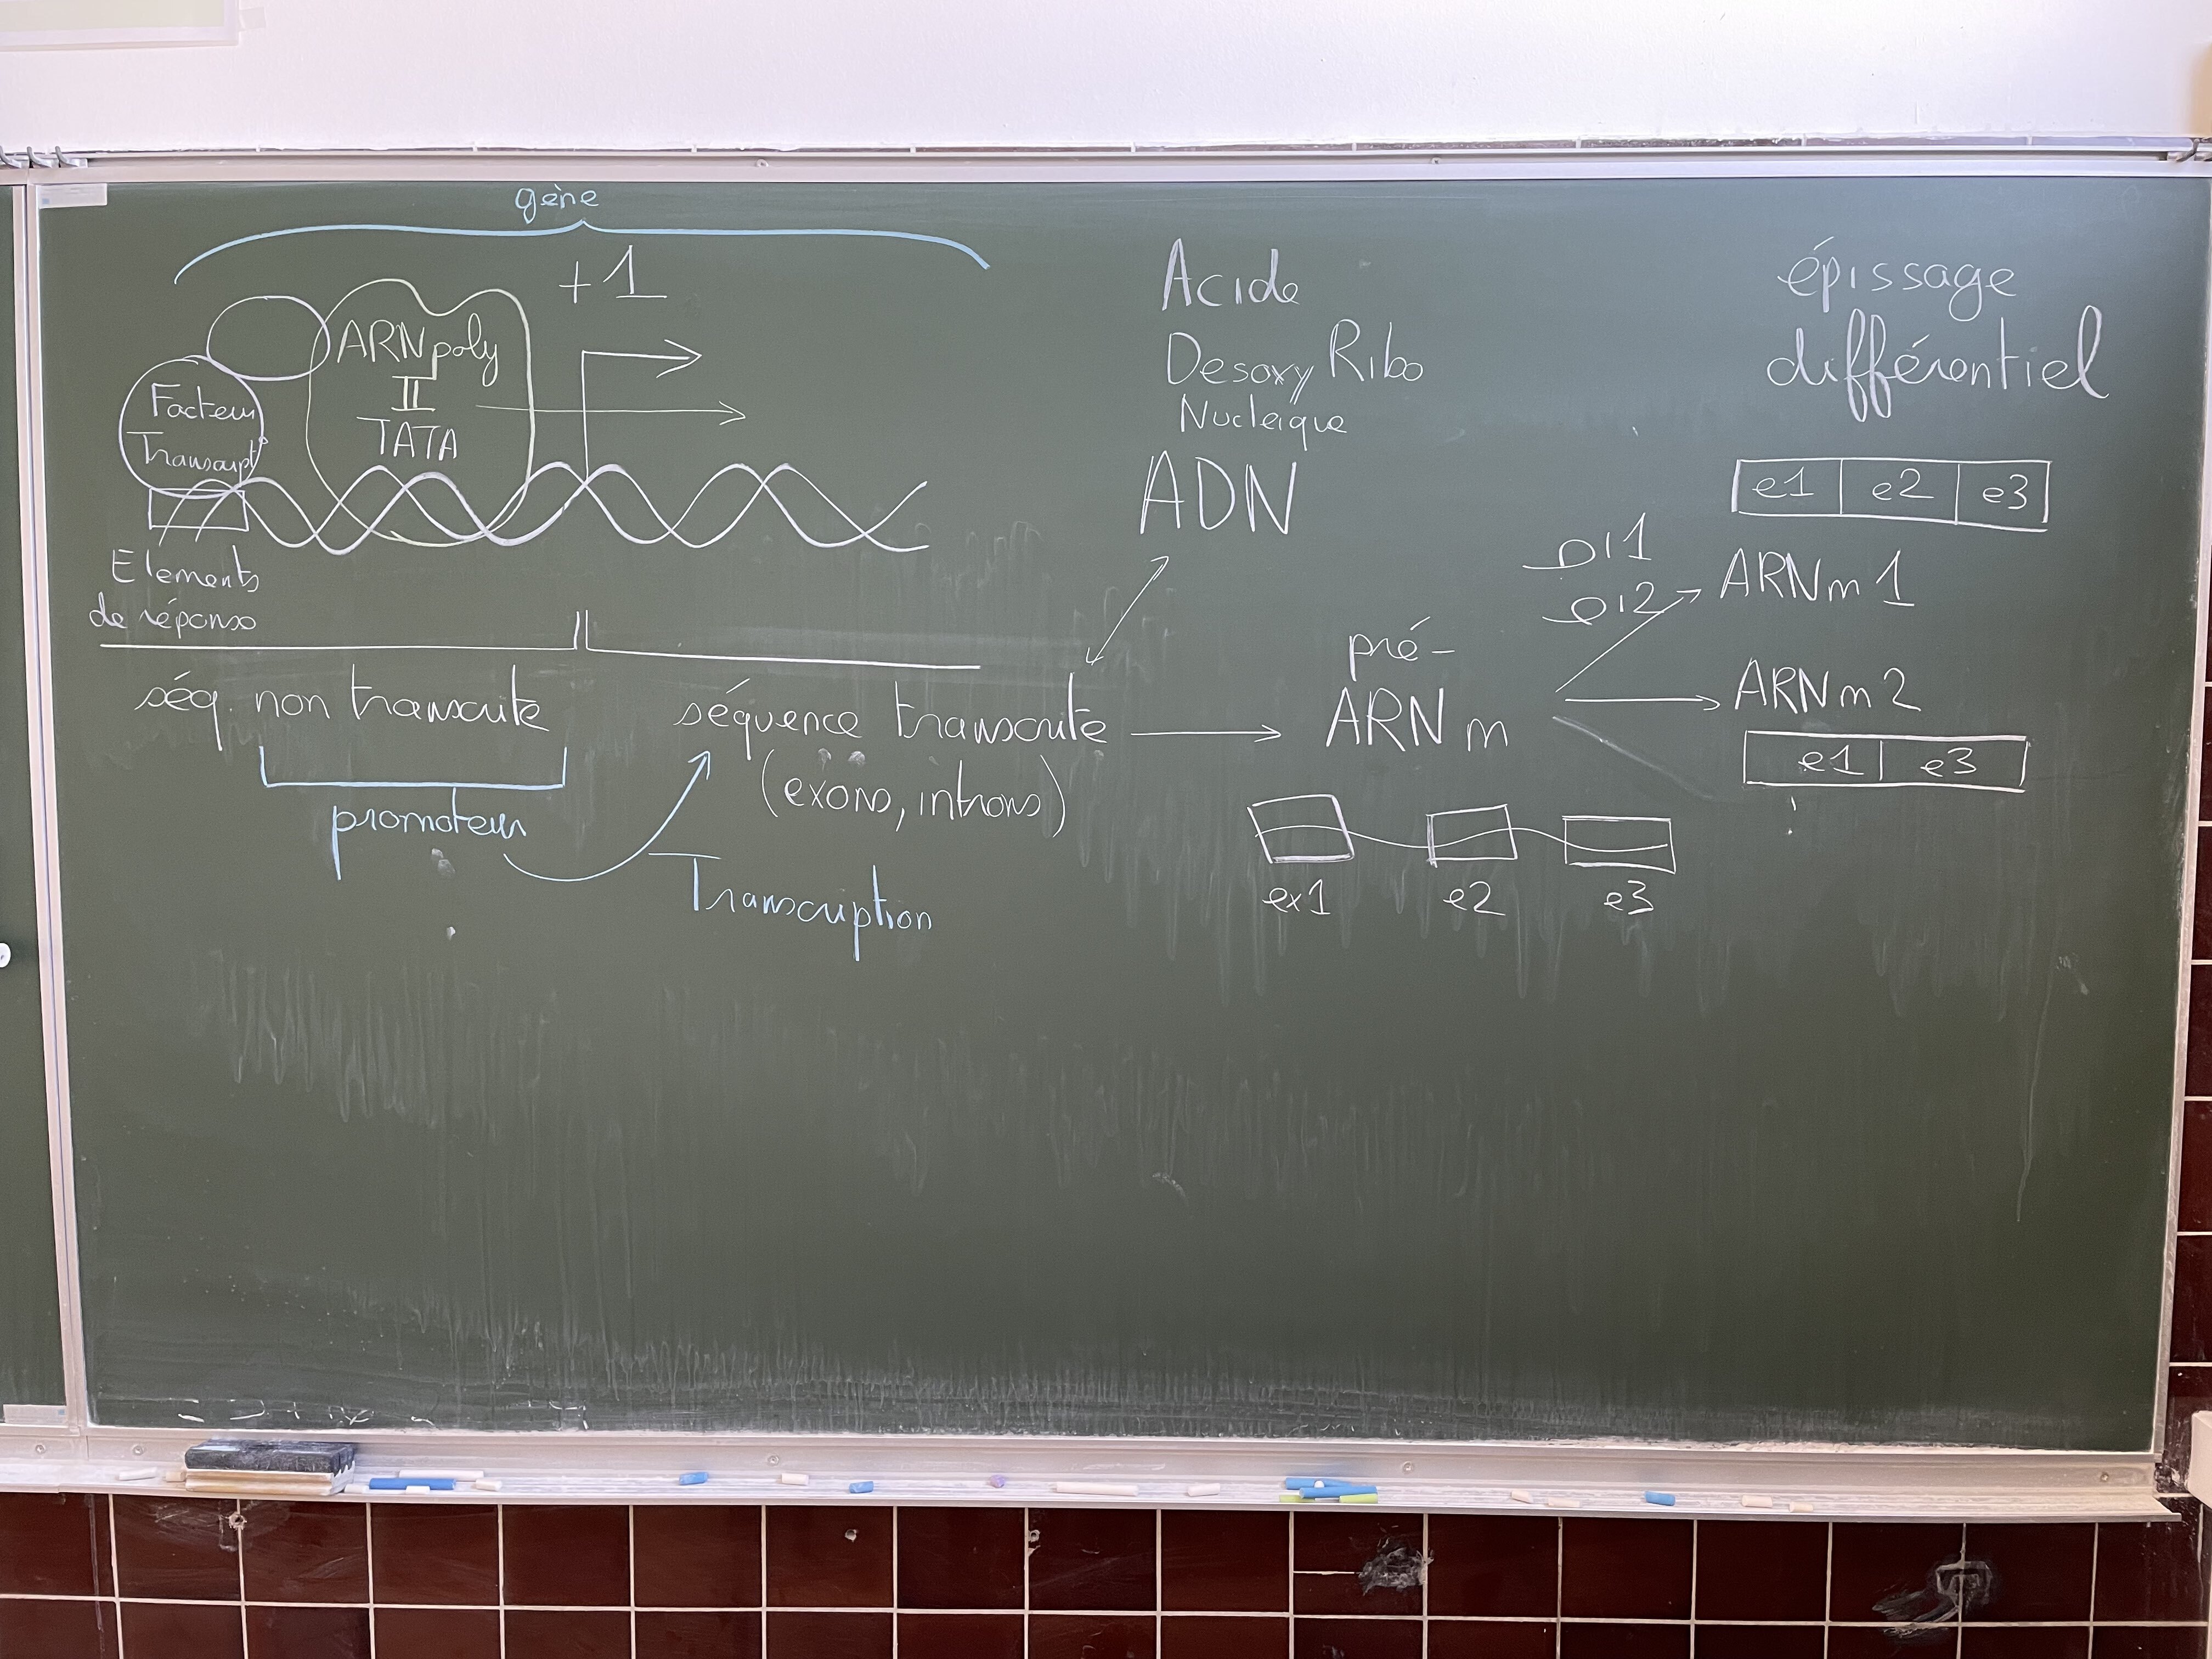 gène
+1
ARN poly
II
TATA
Facteur
Transcript°
Elements
de réponse
séq. non transcrite
promoteur
séquence transcrite
(exons, introns)
Transcription
Acide
Desoxy Ribo
Nucleique
ADN
pré-
ARN m
ex1 e2 e3
épissage
différentiel
e1 e2 e3
i1
i2
ARN m 1
ARN m 2
e1 e3